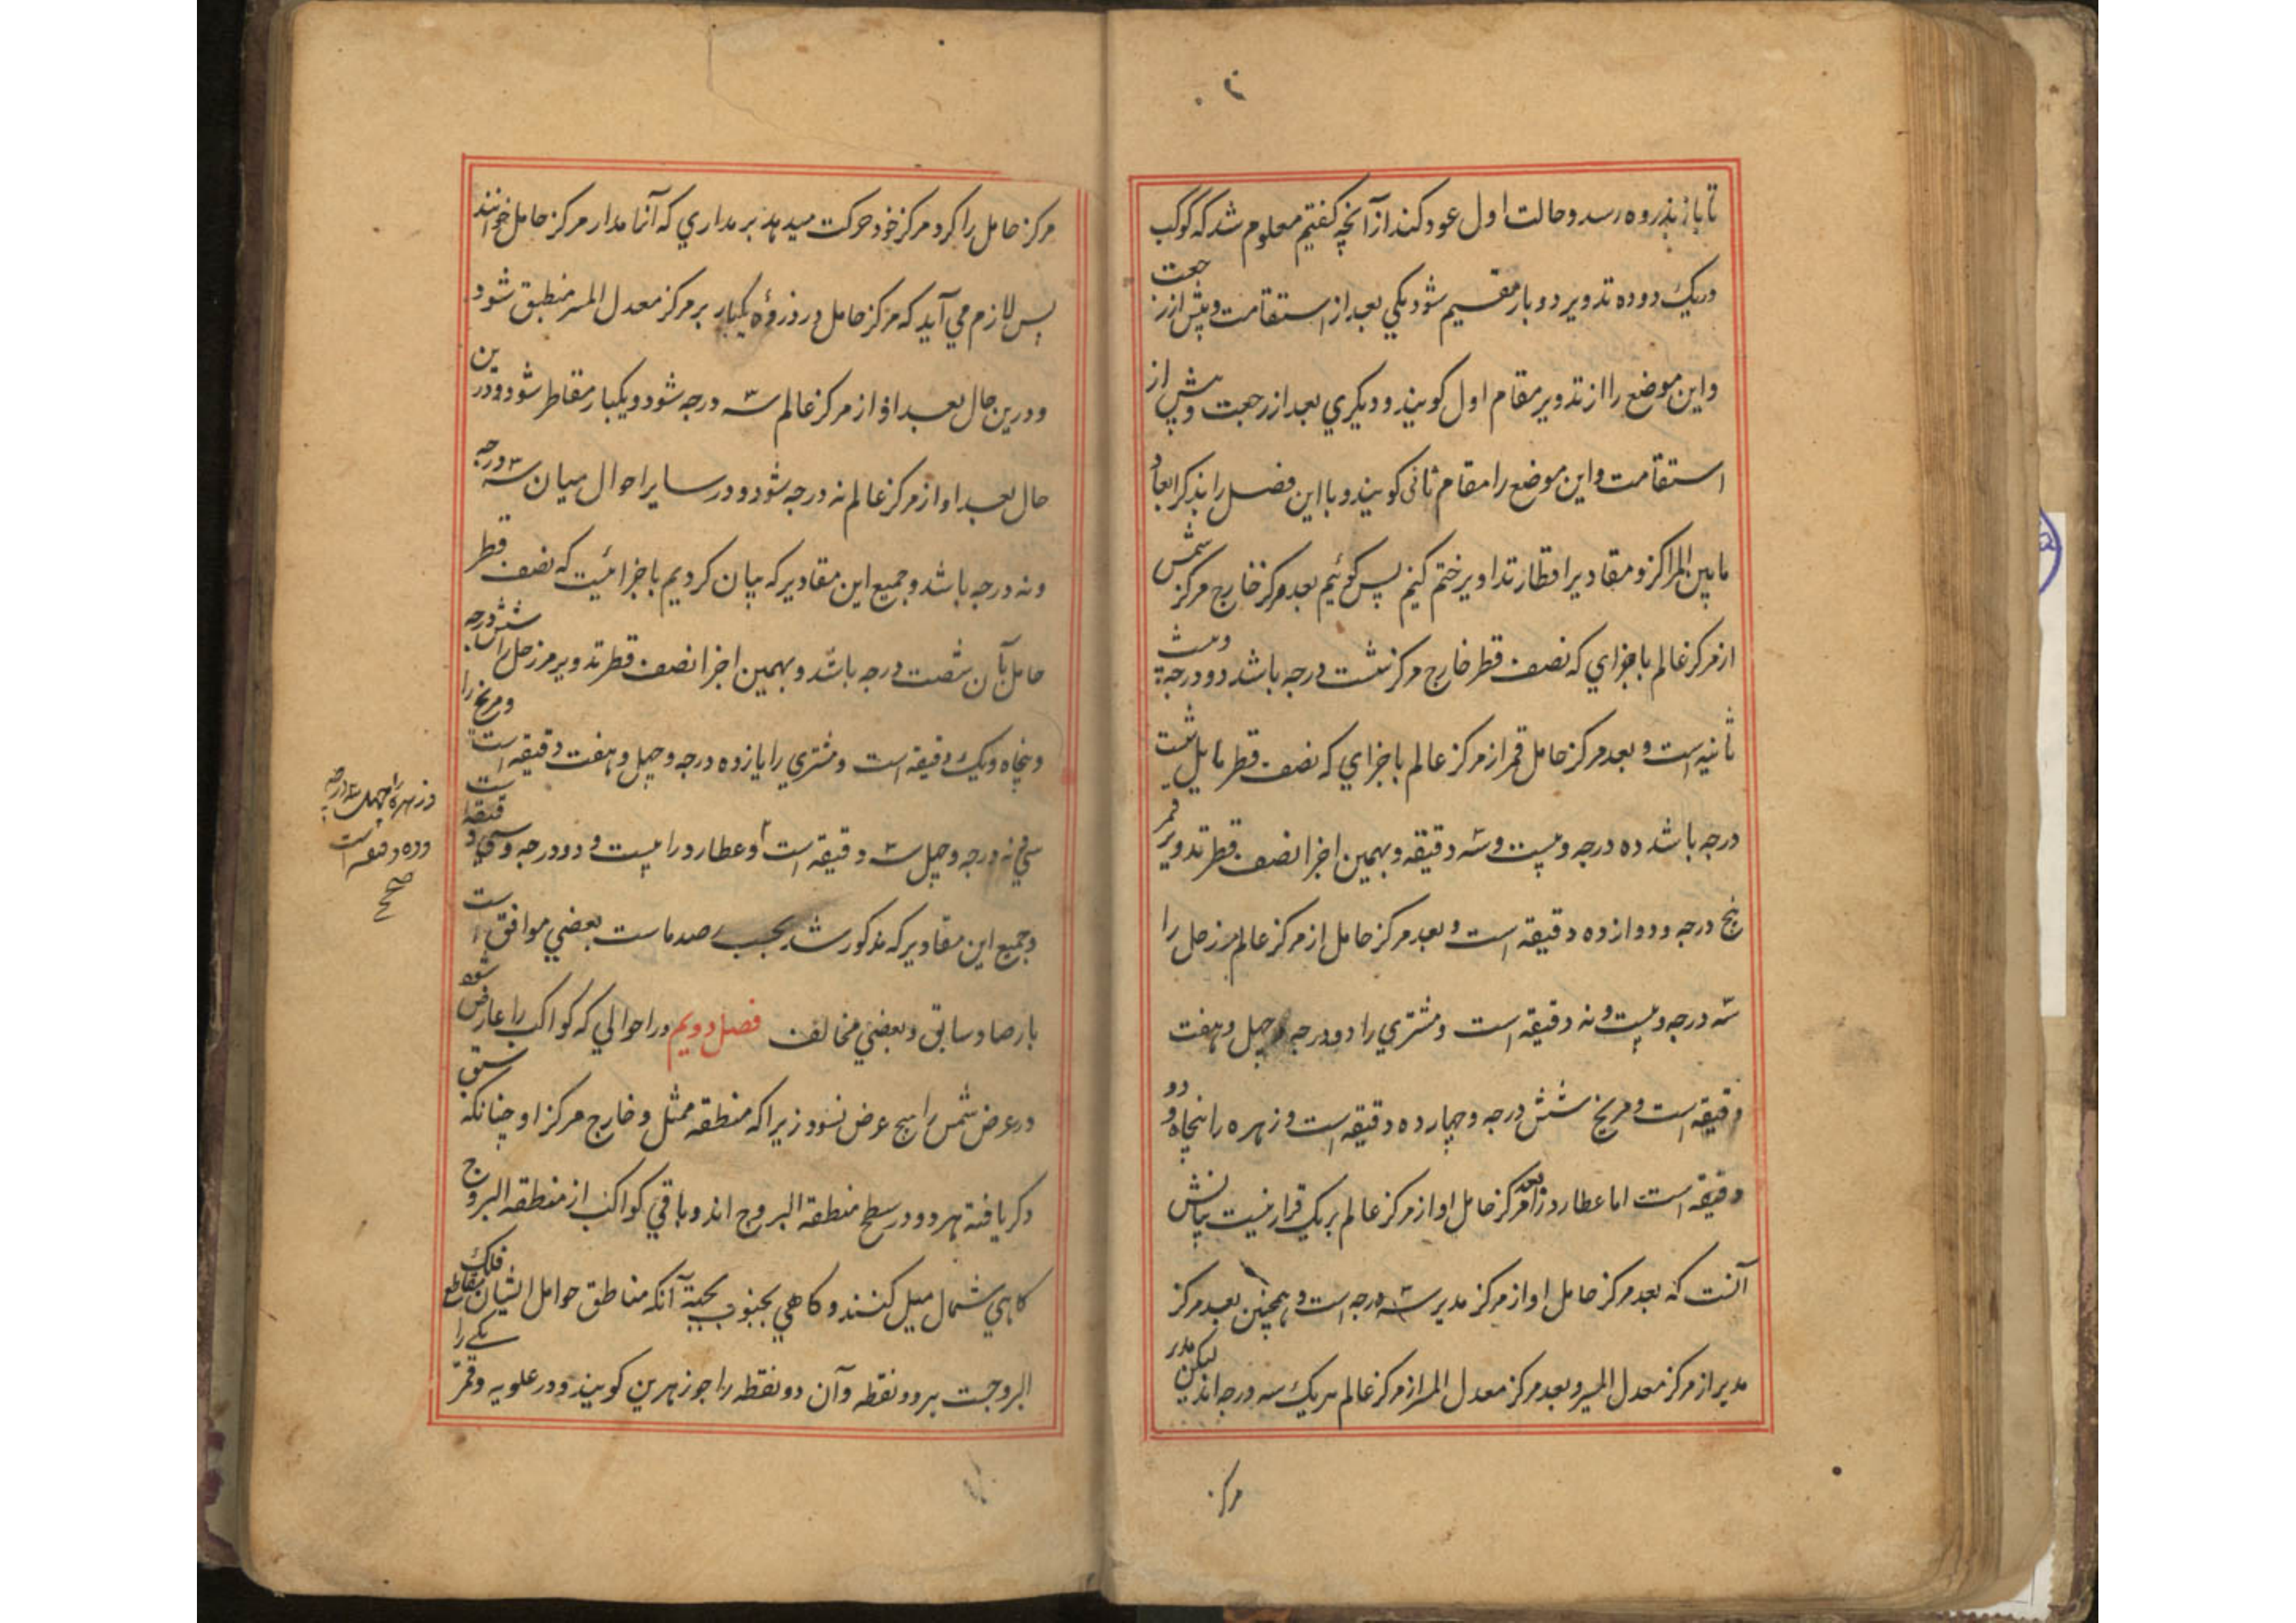 تا باز بذروه رسد و حالت اول عود کند از آنچه کفتیم معلوم شد که کوکب
در یک دوره تدویر دو بار مقیم شود یکی بعد از استقامت و پیش از رجعت
و این موضع را از تدویر مقام اول کویند و دیکری بعد از رجعت و پیش از
استقامت و این موضع را مقام ثانی کویند و با این فصل را بذکر ابعاد
ما بین المراکز و مقادیر اقطار تداویر ختم کنیم پس کوئیم بعد مرکز خارج مرکز شمس
از مرکز عالم باجزای که نصف قطر خارج مرکز شصت درجه باشد دو درجه و بیست
ثانیه است و بعد مرکز حامل قمر از مرکز عالم باجزای که نصف قطر مایل شصت
درجه باشد ده درجه و بیست و سه دقیقه و بهمین اجزا نصف قطر تدویر قمر
پنج درجه و دوازده دقیقه است و بعد مرکز حامل از مرکز عالم مر زحل را
سه درجه و بیست و نه دقیقه است و مشتری را دو درجه و چهل و هفت
دقیقه است و مریخ شش درجه و چهارده دقیقه است و زهره را پنجاه و دو
دقیقه است اما عطارد را بعد مرکز حامل او از مرکز عالم بر یک قرار نیست بیانش
آنست که بعد مرکز حامل او از مرکز مدیر سه درجه است و همچنین بعد مرکز
مدیر از مرکز معدل المسیر و بعد مرکز معدل المسیر از مرکز عالم هر یک سه درجه اند لیکن مدیر
مرکز
مرکز حامل را کرد مرکز خود حرکت میدهد بر مداری که آنا مدار مرکز حامل خوانند
پس لازم می آید که مرکز حامل در ذروه یکبار بر مرکز معدل المسیر منطبق شود
و درین حال بعد او از مرکز عالم سه درجه شود و یکبار مقاطر شود و درین
حال بعد او از مرکز عالم نه درجه شود و در سایر احوال میان سه درجه
و نه درجه باشد و جمیع این مقادیر که بیان کردیم باجزائیست که نصف قطر
حامل بآن شصت درجه باشد و بهمین اجزا نصف قطر تدویر مر زحل را شش درجه
و پنجاه و یک دقیقه است و مشتری را یازده درجه و چهل و هفت دقیقه است و مریخ را
سی و نه درجه و چهل سه دقیقه است و عطارد را بیست و دو درجه و سی و دقیقه است
و زهره را چهل سه درجه
و ده دقیقه است
صح
و جمیع این مقادیر که مذکور شد بحسب رصد ماست بعضی موافق است
بارصاد سابق و بعضی مخالف فصل دویم در احوالی که کواکب را عارض شود
در عرض شمس را هیچ عرض نشود زیرا که منطقه ممثل و خارج مرکز او چنانکه سبق
ذکر یافته هر دو در سطح منطقة البروج اند و باقی کواکب از منطقه البروج
کاهی شمال میل کنند و کاهی بجنوب بجهة آنکه مناطق حوامل ایشان مقاطع فلک
البروجست بر دو نقطه و آن دو نقطه را جوزهرین کویند و در علویه و قمر یکی را